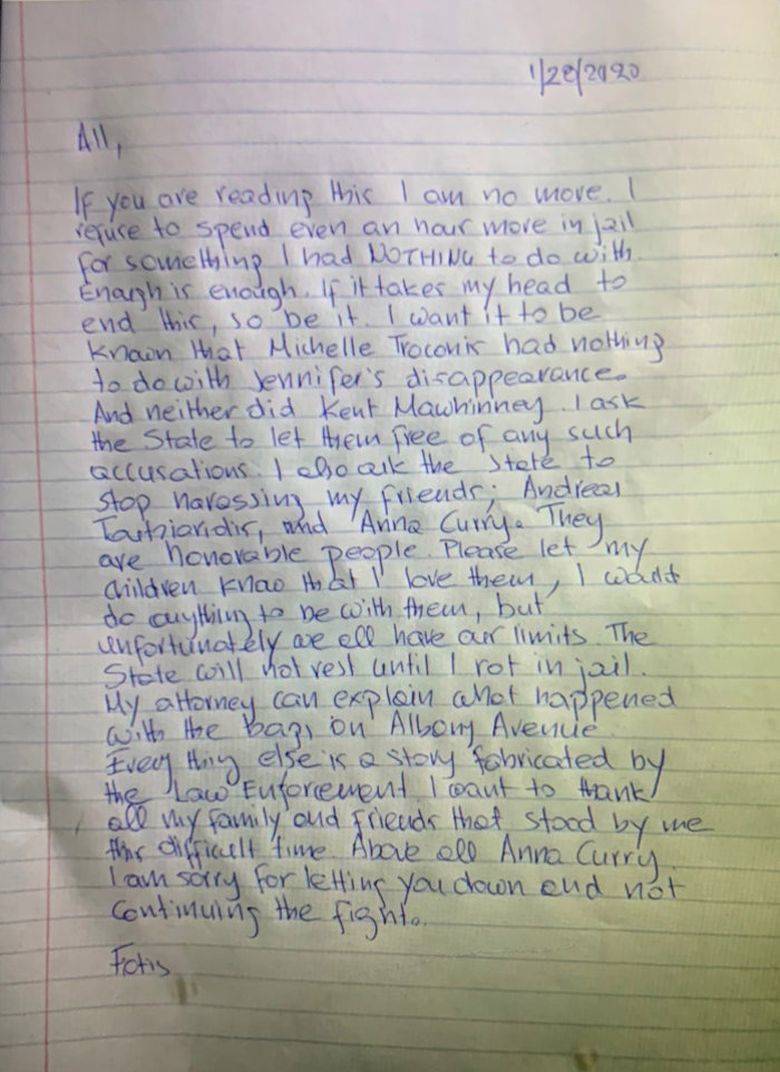 1/28/2020
All,
If you are reading this I am no more. I
refuse to spend even an hour more in jail
for something I had NOTHING to do with.
Enough is enough. If it takes my head to
end this, so be it. I want it to be
known that Michelle Troconis had nothing
to do with Jennifer's disappearance.
And neither did Kent Mawhinney. I ask
the State to let them free of any such
accusations. I also ask the State to
stop harassing my friends; Andreas
and Anna Curry. They
are honorable people. Please let my
children know that I love them, I would
do anything to be with them, but
unfortunately we all have our limits. The
State will not rest until I rot in jail.
My attorney can explain what happened
with the bags on Albany Avenue.
Every thing else is a story fabricated by
the Law Enforcement. I want to thank
all my family and friends that stood by me
this difficult time. Above all Anna Curry.
I am sorry for letting you down and not
continuing the fight.
Fotis